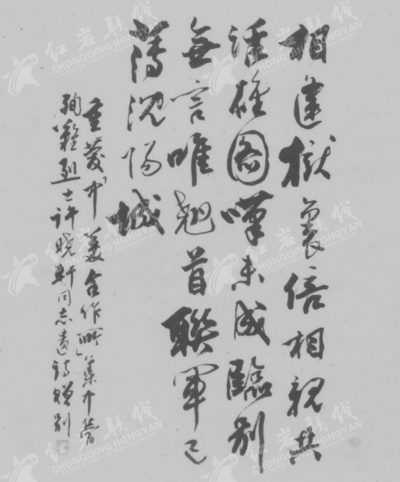 相逢獄裏倍相親共
話雄图嘆未成臨别
無言唯翘首聯軍已
薄沈阳城
重慶“中美合作所”集中营
殉難烈士许晓軒同志遗詩贈别
红岩联线
CHONGQING HONGYAN